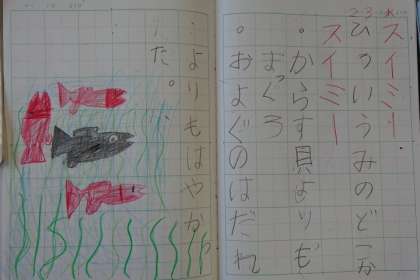 スイミー
ひろいうみのどこか
スイミー
・からす貝よりも
まっくろ
・およぐのはだれ
よりもはやか
た。